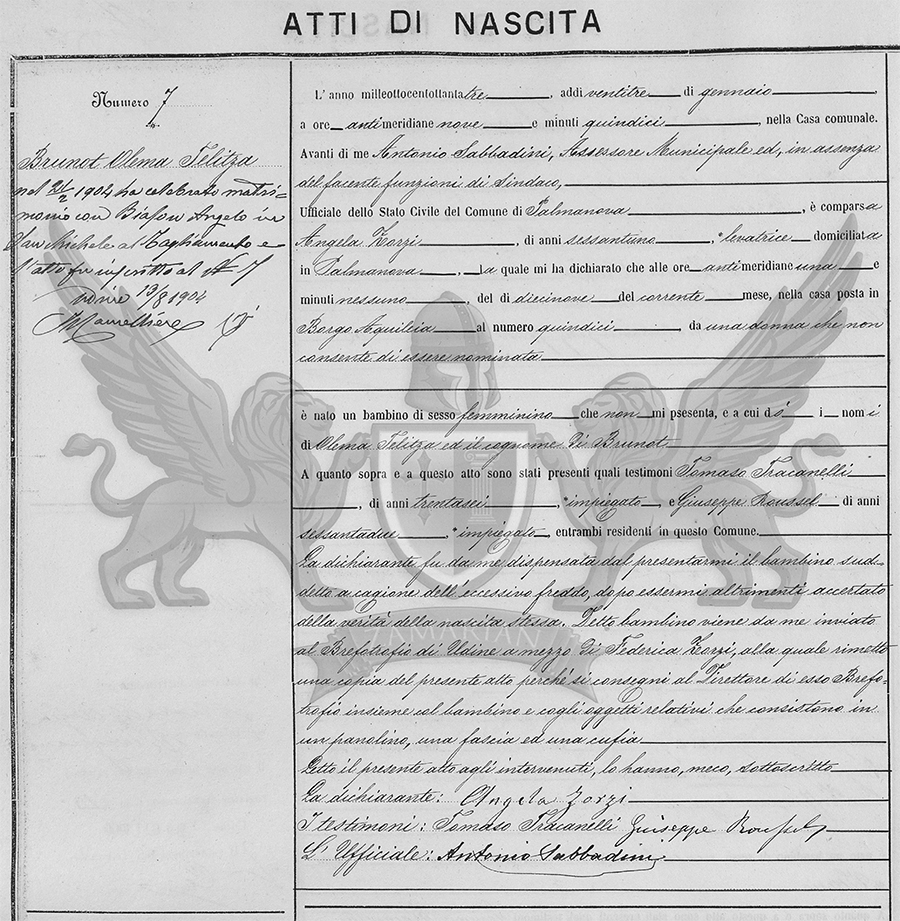 ATTI DI NASCITA
Numero 7
Brunot Olema Felitza
nel 21/2 1904 ha celebrato matri-
monio con Biason Angelo in
San Michele al Tagliamento e
l'atto fu inscritto al N 7
Udine 13/8 1904
L'anno milleottocentottantatre, addì ventitre di gennaio,
a ore antimeridiane nove e minuti quindici, nella Casa comunale.
Avanti di me Antonio Sabbadini, Assessore Municipale ed, in assenza
del facente funzioni di Sindaco,
Ufficiale dello Stato Civile del Comune di Palmanova, è comparsa
Angela Zorzi, di anni sessantuno, levatrice domiciliata
in Palmanova, la quale mi ha dichiarato che alle ore antimeridiane una e
minuti nessuno, del dì diecinove del corrente mese, nella casa posta in
Borgo Aquileia al numero quindici, da una donna che non
consente di essere nominata
è nato un bambino di sesso femminino che non mi presenta, e a cui dó i nomi
di Olema Felitza ed il cognome di Brunot
A quanto sopra e a questo atto sono stati presenti quali testimoni Tomaso Tracanelli
, di anni trentasei, impiegato, e Giuseppe Roussel di anni
sessantadue, impiegato, entrambi residenti in questo Comune.
La dichiarante fu da me dispensata dal presentarmi il bambino sud-
detto a cagione dell'eccessivo freddo, dopo essermi altrimenti accertato
della verità della nascita stessa. Detto bambino viene da me inviato
al Brefotrofio di Udine a mezzo di Federica Zorzi, alla quale rimetto
una copia del presente atto perché si consegni al Direttore di esso Brefo-
trofio insieme col bambino e cogli oggetti relativi che consistono in
un panolino, una fascia ed una cufia
Letto il presente atto agli intervenuti, lo hanno, meco, sottoscritto
La dichiarante: Angela Zorzi
I testimoni: Tomaso Tracanelli Giuseppe Roussel
L'Ufficiale: Antonio Sabbadini